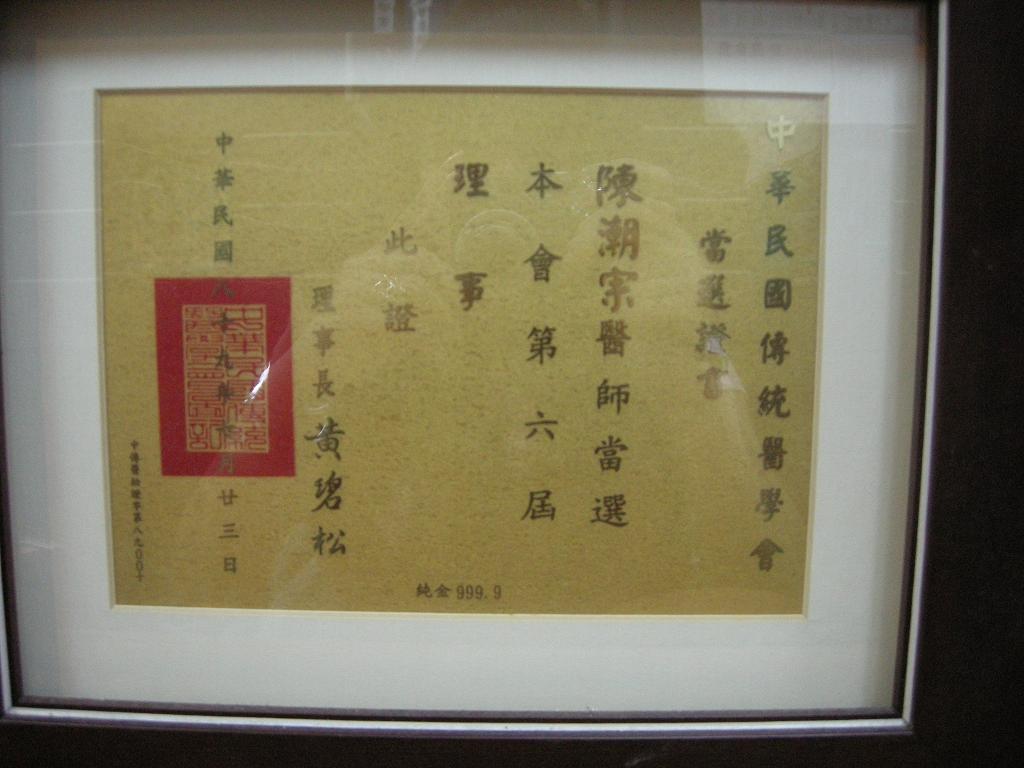 中華民國傳統醫學會
當選證書
陳潮宗醫師當選
本會第六屆
理事
此證
理事長 黃碧松
中華民國八十九年 月廿三日
純金999.9